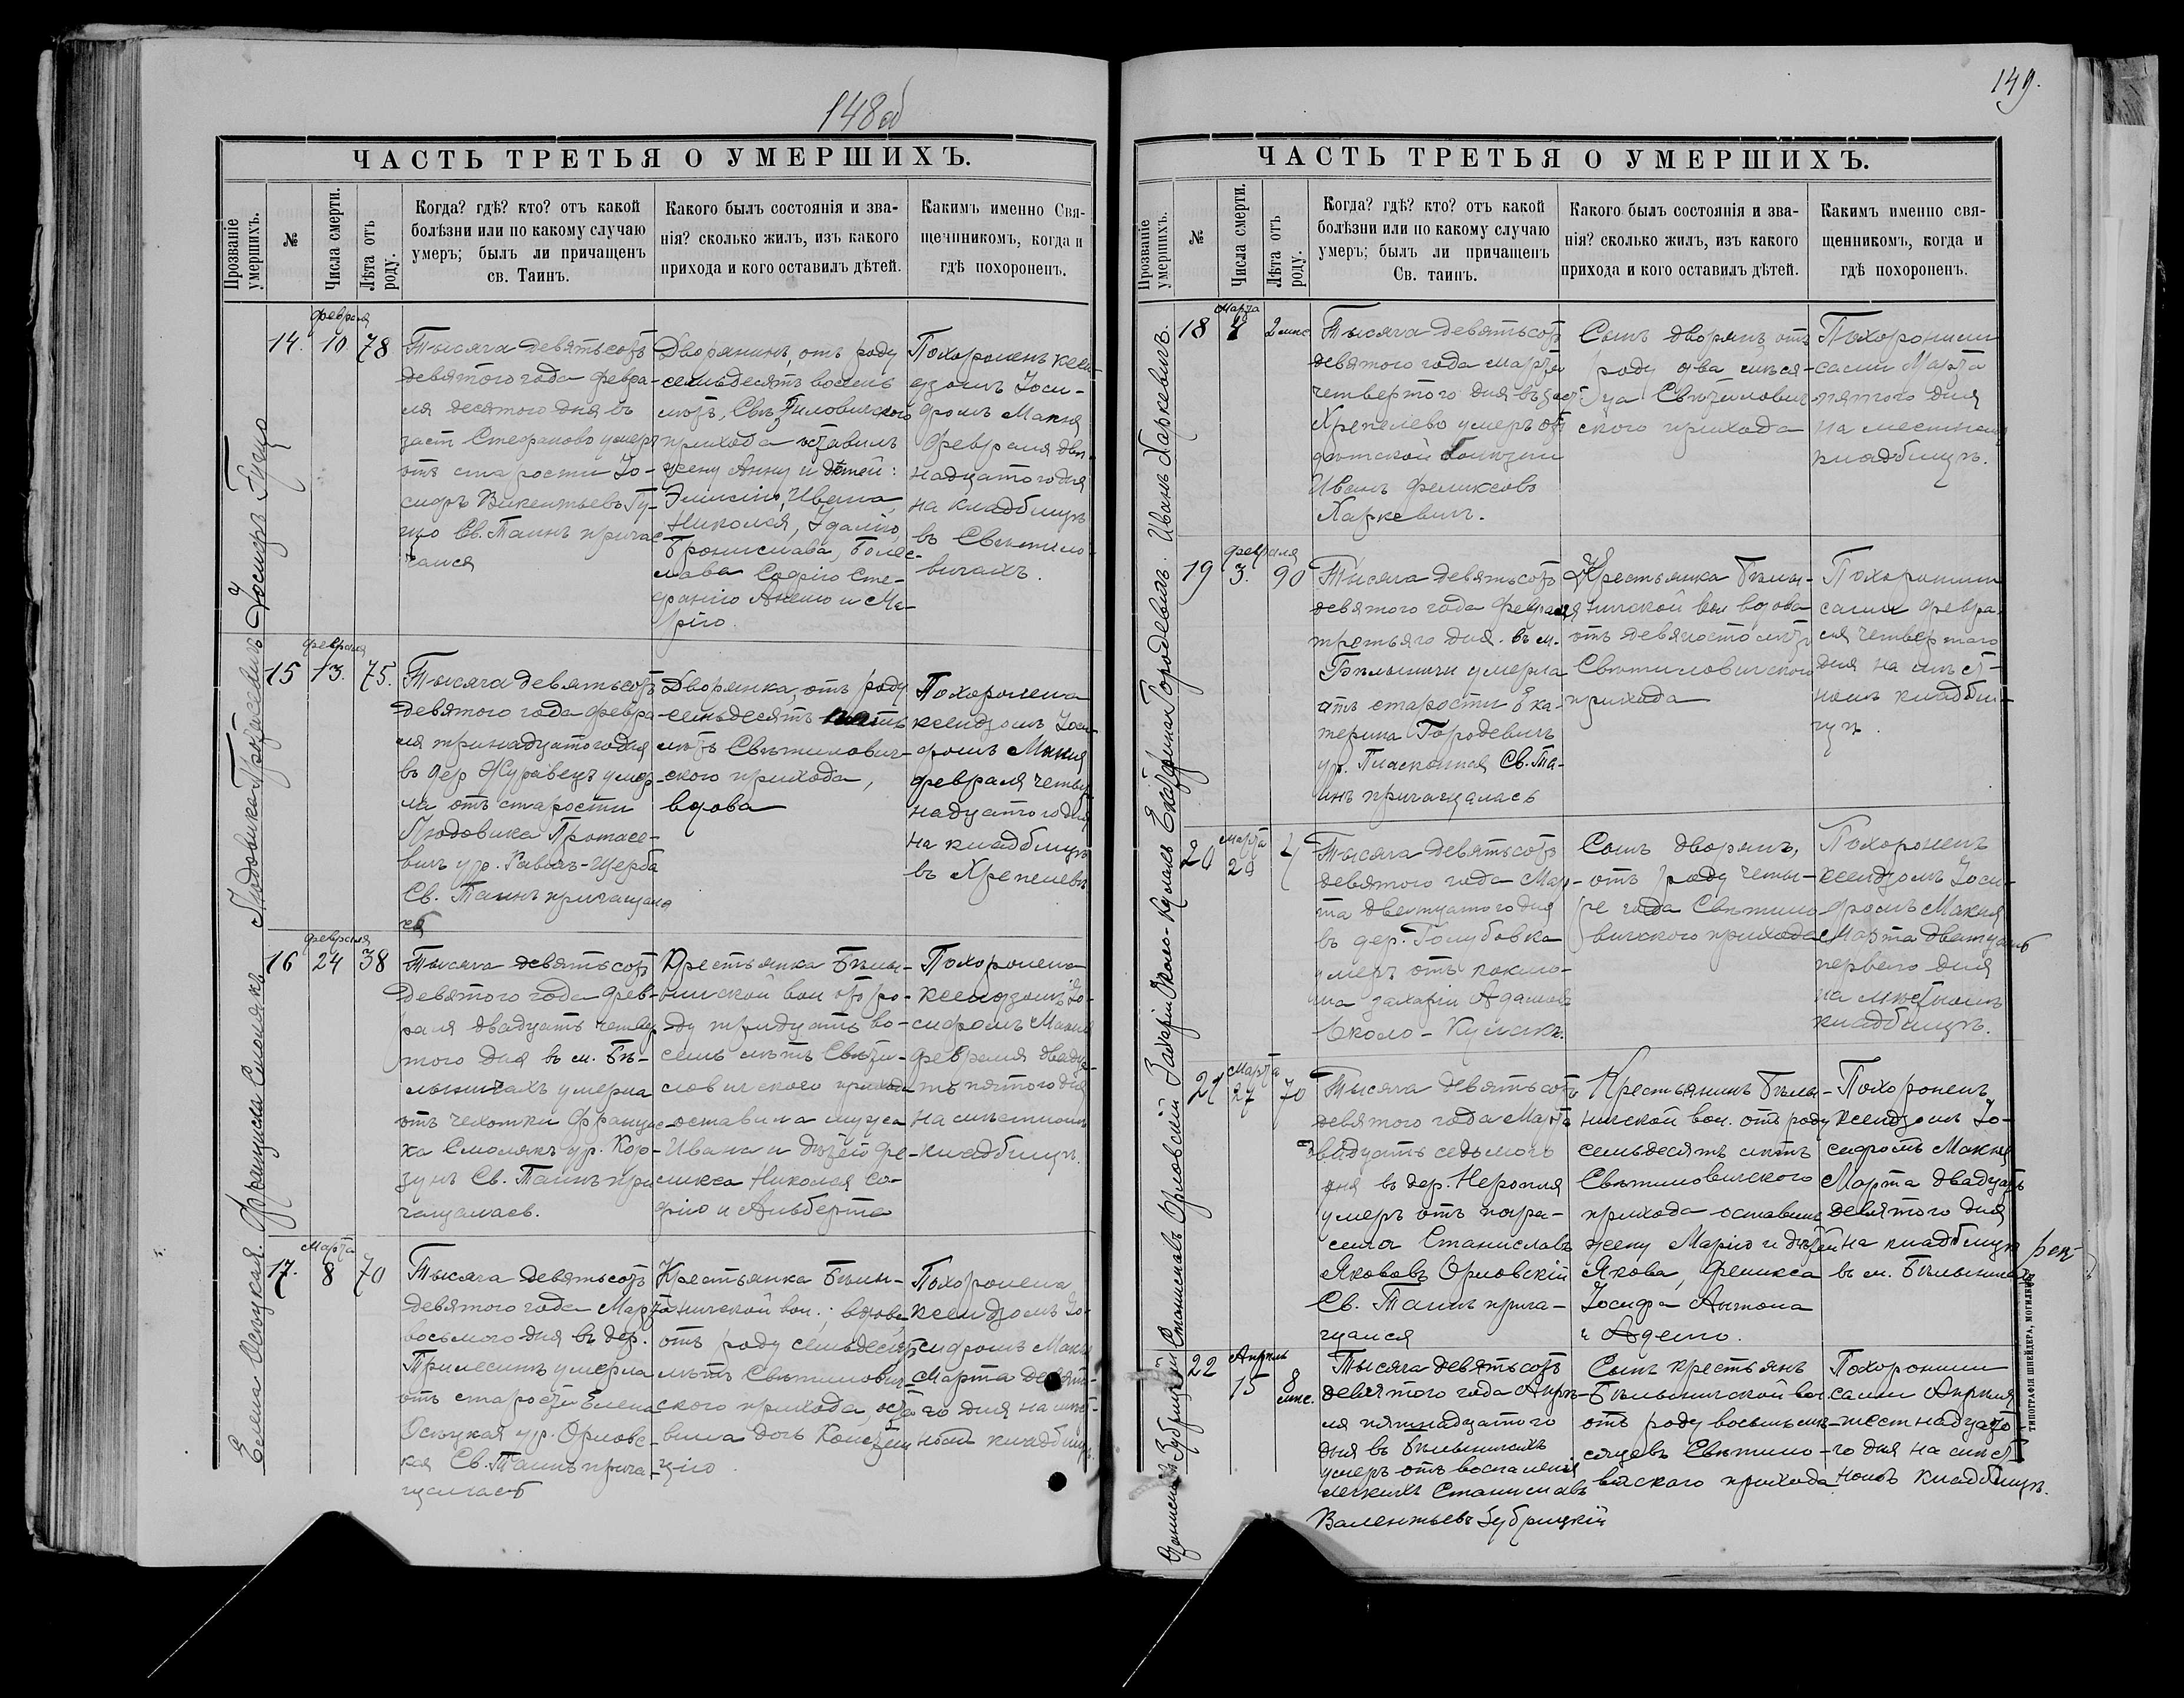 148об
ЧАСТЬ ТРЕТЬЯ О УМЕРШИХЪ.
Прозваніе умершихъ.
№
Числа смерти.
Лѣта отъ роду.
Когда? гдѣ? кто? отъ какой
болѣзни или по какому случаю
умеръ; былъ ли причащенъ
св. Таинъ.
Какого былъ состоянія и зва-
нія? сколько жилъ, изъ какого
прихода и кого оставилъ дѣтей.
Какимъ именно Свя-
щенникомъ, когда и
гдѣ похороненъ.
Іосифъ Гуцо
14.
февраля
10
78
Тысяча девятьсотъ
девятого года февра-
ля десятого дня въ
заст Стефаново умеръ
отъ старости Іо-
сифъ Викентьевъ Гу-
цо Св. Таинъ прича-
щался
Дворянинъ, отъ роду
семьдесятъ восемь
лѣтъ, Свѣтиловичского
прихода оставилъ
жену Анну и дѣтей:
Эмилію, Ивана,
Николая, Идалію,
Бронислава, Болес-
лава Софію Сте-
фанію Анелю и Ма-
рію.
Похороненъ ксен-
дзомъ Іоси-
фомъ Макня
Февраля две-
надцатого дня
на кладбищѣ
въ Свѣтило-
вичахъ.
Людовика Протасевичъ
15
февраля
13.
75.
Тысяча девятьсотъ
девятого года февра-
ля тринадцатого дня
въ дер Журавецъ умер-
ла отъ старости
Людовика Протасе-
вичъ ур. Равичъ-Щерба
Св. Таинъ причащала
сь
Дворянка, отъ роду
семьдесятъ пять
лѣтъ Свѣтилович-
ского прихода,
вдова
Похоронена
ксендзомъ Іоси-
фомъ Макня
февраля четыр-
надцатого дня
на кладбищѣ
въ Хрепелевѣ
Франциска Смолякъ
16
февраля
24
38
Тысяча девятьсотъ
девятого года фев-
раля двадцать четвер-
того дня въ м. Бѣ-
лыничахъ умерла
отъ чехотки Францис-
ка Смолякъ ур. Кор-
зунъ Св. Таинъ при
чащалась.
Крестьянка Бѣлы-
ничской вол отъ ро-
ду тридцать во-
семь лѣтъ Свѣти-
ловичского прихода
оставила мужа
Ивана и дѣтей Фе-
ликса Николая Со-
фію и Альберта
Похоронена
ксендзомъ Іо-
сифомъ Макня
Февраля двадца-
ть пятого дня
на мѣстномъ
кладбищѣ.
Елена Осецкая.
17.
Марта
8
70
Тысяча девятьсотъ
девятого года Марта
восьмого дня въ дер.
Прилесинъ умерла
отъ старости Елена
Осецкая ур. Орловс-
кая Св. Таинъ прича-
щалась
Крестьянка Бѣлы-
ничской вол.; вдова
отъ роду семьдесятъ
лѣтъ Свѣтилович-
ского прихода, оста
вила дочь Констан
цію.
Похоронена
ксендзомъ Іо-
сифомъ Макня
Марта девят-
го дня на мѣст-
номъ кладбищѣ.
149.
ЧАСТЬ ТРЕТЬЯ О УМЕРШИХЪ.
Прозваніе умершихъ.
№
Числа смерти.
Лѣта отъ роду.
Когда? гдѣ? кто? отъ какой
болѣзни или по какому случаю
умеръ; былъ ли причащенъ
Св. таинъ.
Какого былъ состоянія и зва-
нія? сколько жилъ, изъ какого
прихода и кого оставилъ дѣтей.
Какимъ именно свя-
щенникомъ, когда и
гдѣ похороненъ.
Иванъ Харкевичъ.
18
Марта
4
2 мис
Тысяча девятьсотъ
девятого года марта
четвертого дня въ заст.
Хрепелево умеръ отъ
дѣтской болѣзни
Иванъ Феликсовъ
Харкевичъ.
Сынъ дворянъ отъ
роду два мися-
ца Свѣтилович
ского прихода
Похоронили
сами Марта
пятого дня
на местномъ
кладбищѣ.
Екатерина Городевичъ
19
февраля
3.
90
Тысяча девятьсотъ
девятого года февраля
третьяго дня въ м.
Бѣлыничи умерла
отъ старости Ека-
терина Городевичъ
ур. Пласконная Св. Та-
инъ причащалась
Крестьянка Бѣлы-
ничской вол вдова
отъ девяносто лѣтъ
Свѣтиловичского
прихода
Похоронили
сами февра-
ля четвертого
дня на мѣст-
номъ кладби-
щѣ.
Захарій Около-Кулакъ
20
Марта
20
4
Тысяча девятьсотъ
девятого года Мар-
та двадцатого дня
въ дер. Голубовка
умеръ отъ кокло-
ша Захарій Адамовъ
Около-Кулакъ.
Сынъ дворянъ,
отъ роду четы-
ре года Свѣтило
вичского прихода
Похороненъ
ксендзомъ Іоси-
фомъ Макня
Марта двадцать
первого дня
на мѣстномъ
кладбищѣ.
Станиславъ Орловскій
21
Марта
27
70
Тысяча девятьсотъ
девятого года Марта
двадцать седьмого
дня въ дер. Неропля
умеръ отъ пара-
лича Станиславъ
Якововъ Орловскій
Св. Таинъ прича-
щался
Крестьянинъ Бѣлы-
ничской вол. отъ роду
семьдесятъ лѣтъ
Свѣтиловичского
прихода оставилъ
жену Марію и дѣтей
Якова, Феликса
Іосифа Антона
и Аделю.
Похороненъ
ксендзомъ Іо-
сифомъ Макня
Марта двадцать
девятого дня
на кладбищѣ
въ м. Бѣлыничахъ
Станиславъ Зубрицкій
22
Апрель
15
8
мис.
Тысяча девятьсотъ
девятого года Апрѣ-
ля пятнадцатого
дня въ Бѣлыничахъ
умеръ отъ воспаленія
легкихъ Станиславъ
Валентьевъ Зубрицкій
Сынъ крестьянъ
Бѣлыничской вол
отъ роду восемь мѣ-
сяцевъ Свѣтило-
вичского прихода
Похоронили
сами Апрѣля
шестнадцато-
го дня на мѣст
номъ кладбищѣ.
ТИПОГРАФІЯ ШНЕЙДЕРА, МОГИЛЕВЪ